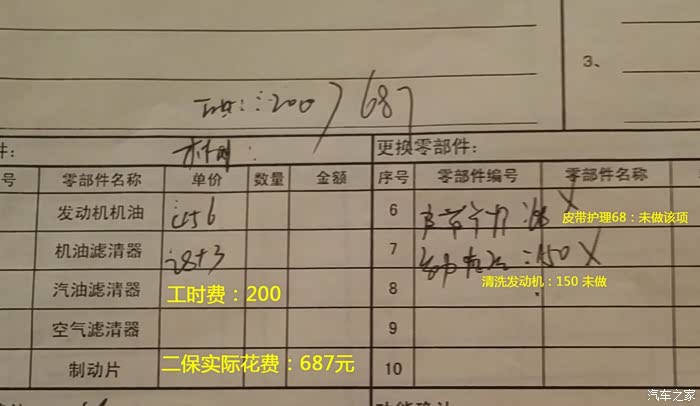 3、
工时：200 687
件：
更换零部件：
号 零部件名称 单价 数量 金额 序号 零部件编号 零部件名称
发动机机油 456 6 :68 X 皮带护理68：未做该项
机油滤清器 28+3 7 :150 X
清洗发动机：150 未做
汽油滤清器 8
工时费：200
空气滤清器 9
制动片 10
二保实际花费：687元
汽车之家